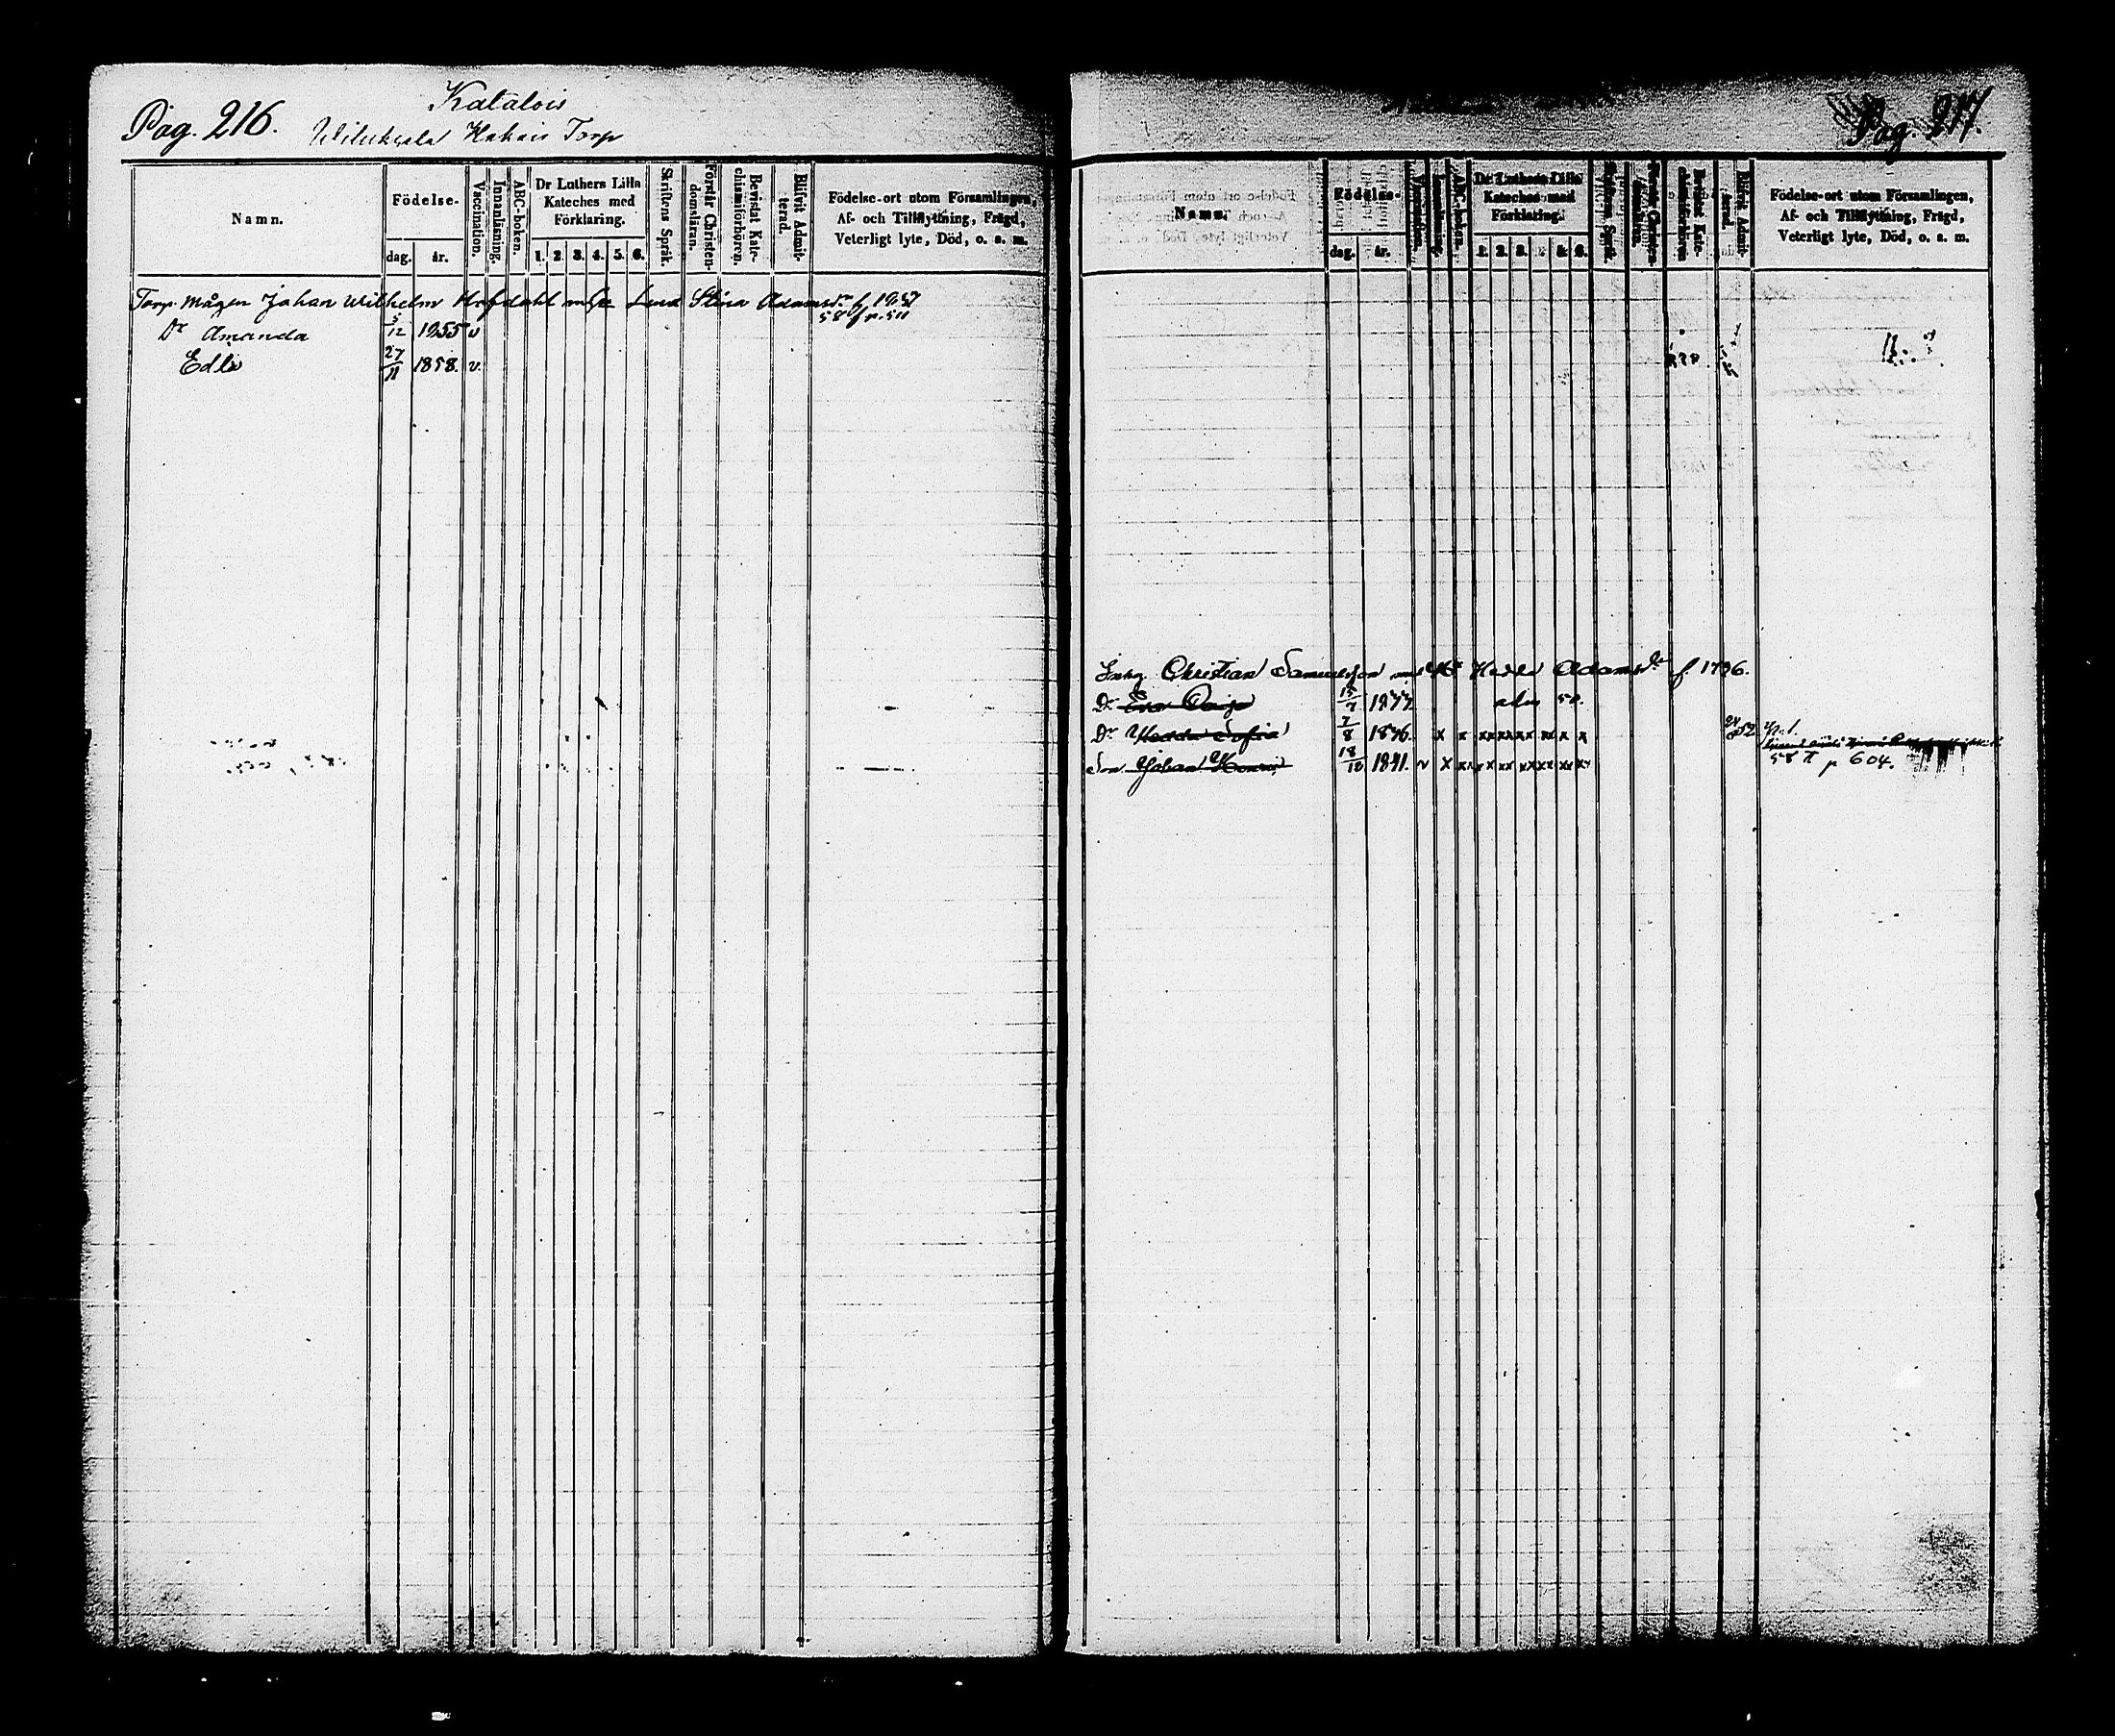 Pag. 216.
Katalois
Hakais Torp
Namn.
Födelse-
dag. år.
Vaccination.
Innanläsning.
ABC-boken.
Dr Luthers Lilla Kateches med Förklaring.
1. 2. 3. 4. 5. 6.
Skriftens Språk.
Förstår Christendomsläran.
Bevistat Katechismiförhören.
Blifvit Admitterad.
Födelse-ort utom Församlingen,
Af- och Tillflyttning, Frägd,
Veterligt lyte, Död, o. s. m.
Torp. Mågen Johan Wilhelm Stina Adamsdr f.
58 f
Dr Amanda 5/12 1855 v
Edla 27/11 1858. v.
Pag. 217.
Namn.
Födelse-
dag. år.
Vaccination.
Innanläsning.
ABC-boken.
Dr Luthers Lilla
Kateches med
Förklaring.
1. 2. 3. 4. 5. 6.
Skriftens Språk.
Förstår Christendomsläran.
Bevistat Katechismiförhören
Blifvit Admitterad.
Födelse-ort utom Församlingen,
Af- och Tillflyttning, Frägd,
Veterligt lyte, Död, o. s. m.
Inhg Christian Samuelsson med Hedda Adamsdr f.
Dr Eva 15/7 50.
Dr Hedda Sofia 7/8 x x xx xx xx xx x x
Son Johan Henric 18/10 v x xx x x xx xx xx xx
58 p 604.